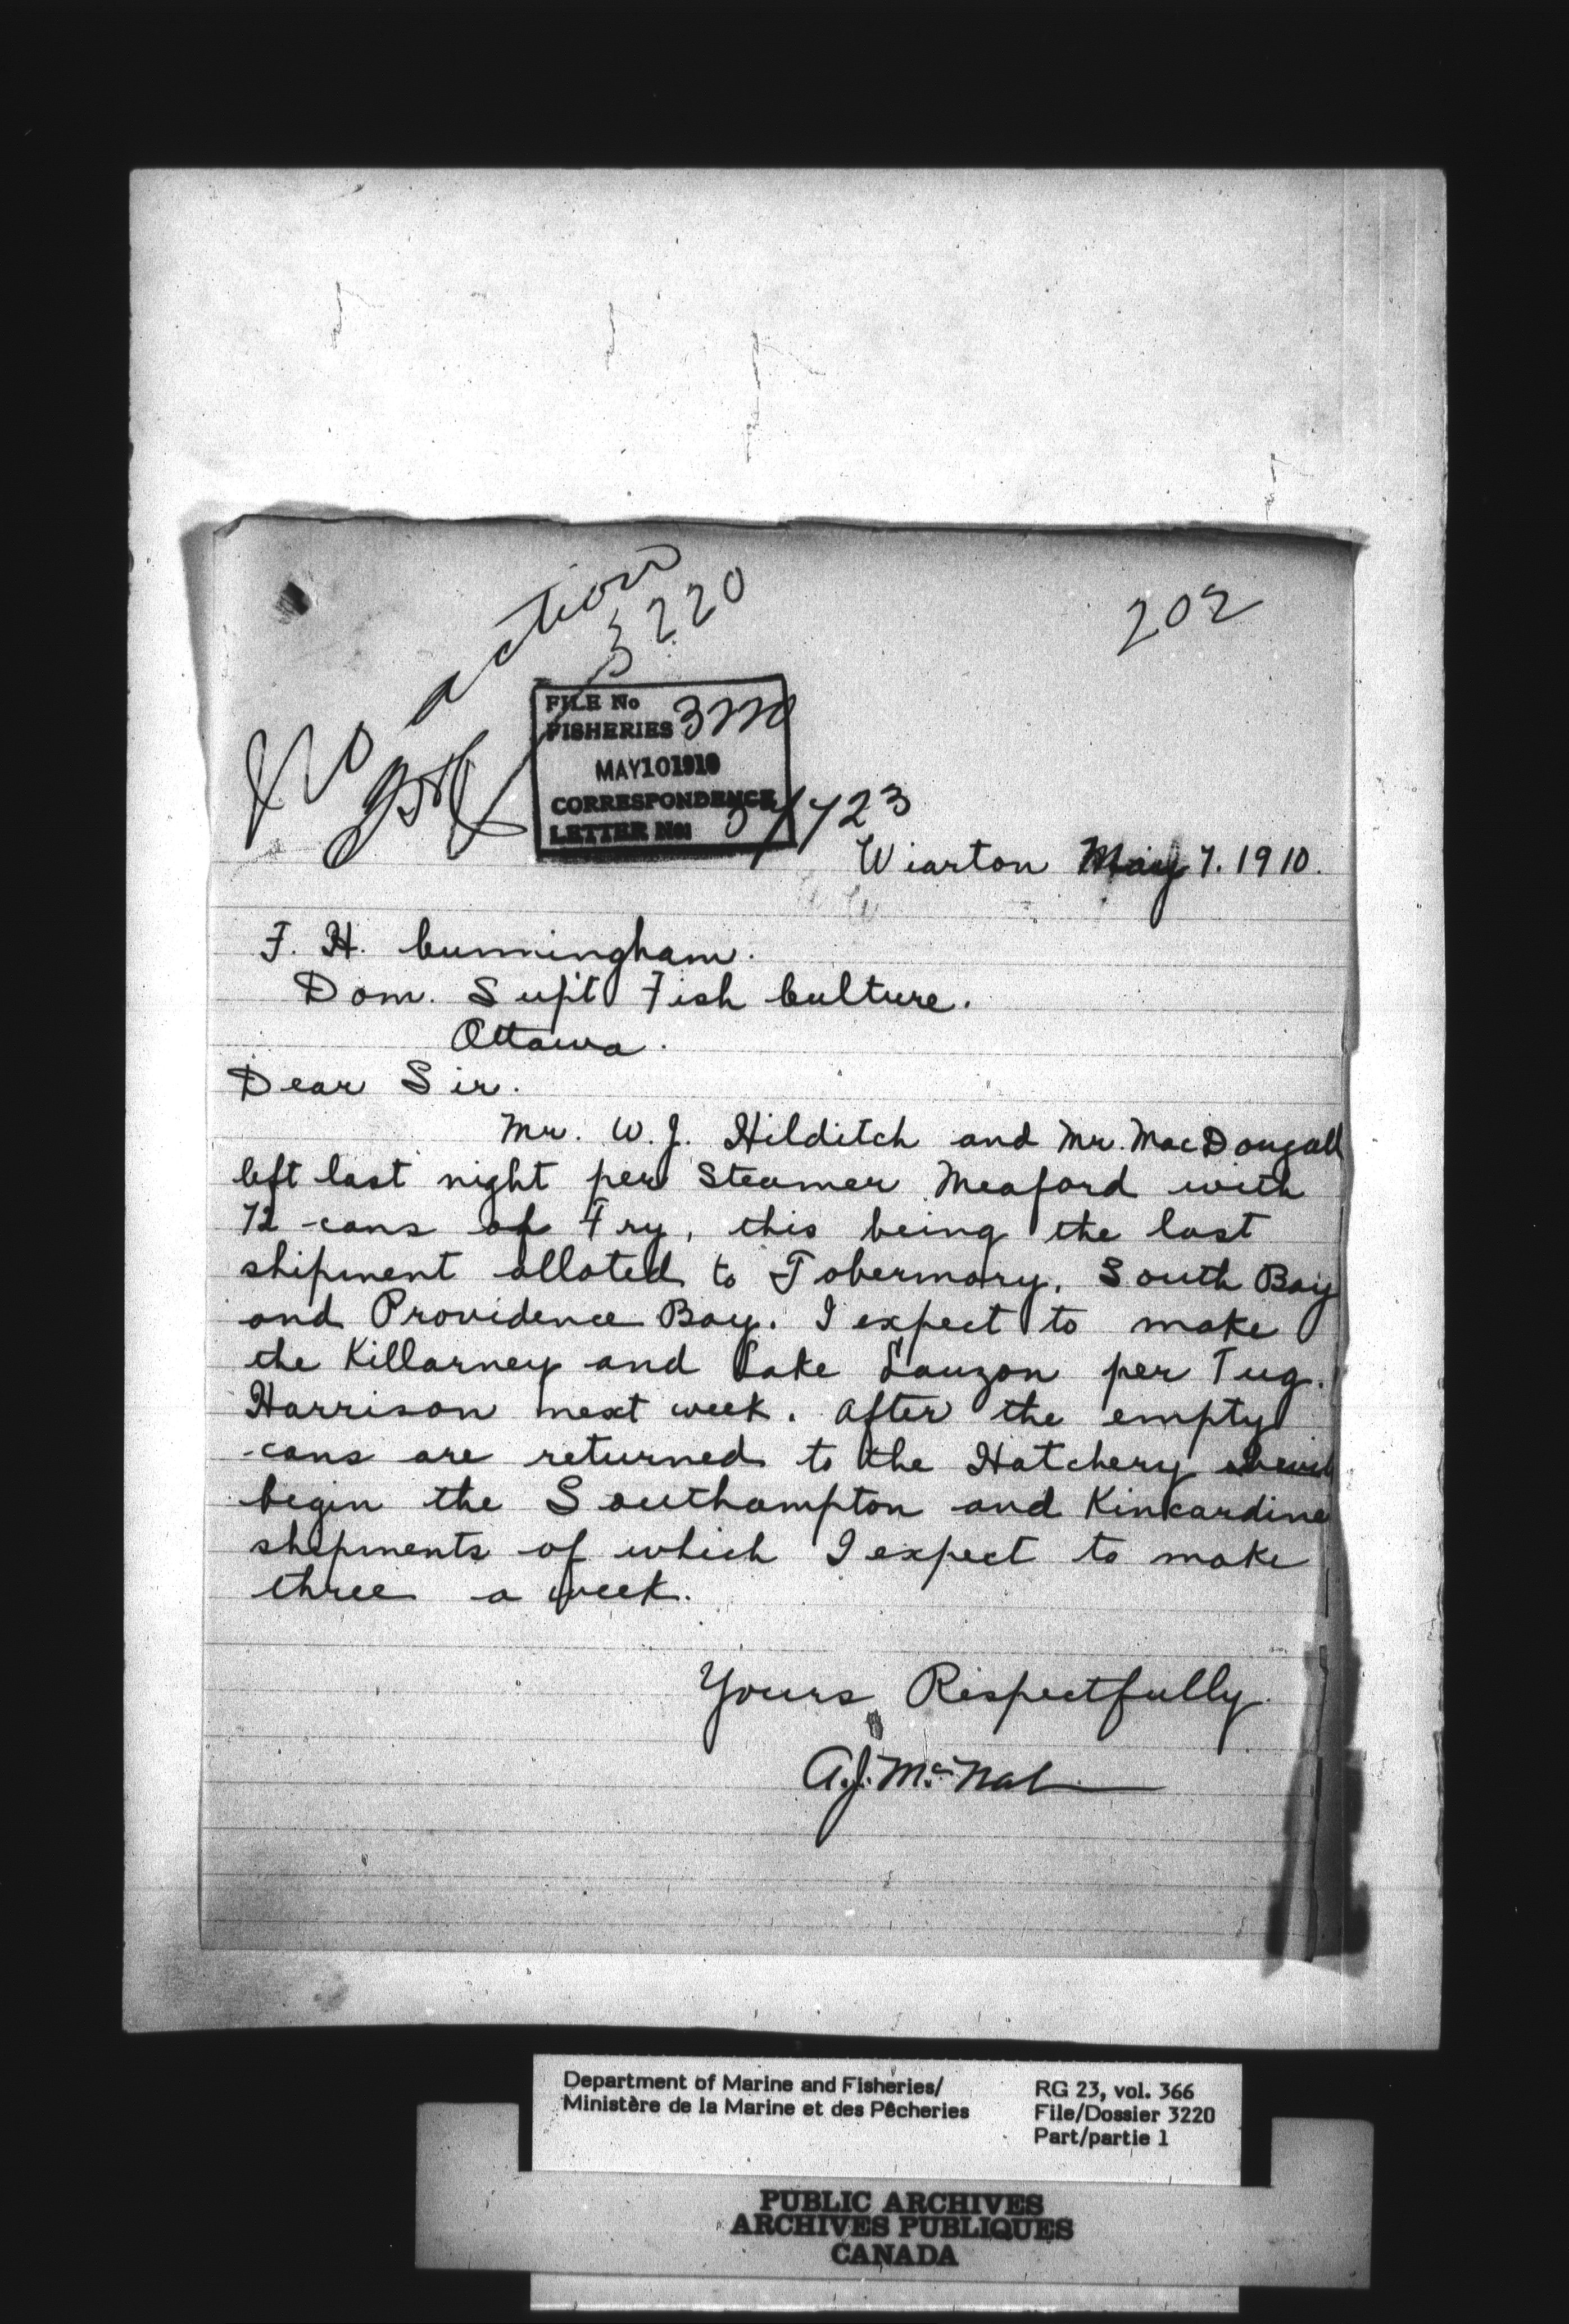 No action
3220
202
FILE No
FISHERIES 3220
MAY 10 1910
CORRESPONDENCE
LETTER No:
Wiarton May 7. 1910.
F. H. Cunningham.
Dom. Sup't Fish Culture.
Ottawa.
Dear Sir.
Mr. W. J. Hilditch and Mr. MacDougall
left last night per Steamer Meaford with
72 cans of Fry, this being the last
shipment alloted to Tobermory, South Bay
and Providence Bay. I expect to make
the Killarney and Lake Lauzon per Tug.
Harrison next week. After the empty
cans are returned to the Hatchery
begin the Southampton and Kincardine
shipments of which I expect to make
three a week.
Yours Respectfully
A. J. McNab
Department of Marine and Fisheries/
Ministère de la Marine et des Pêcheries
RG 23, vol. 366
File/Dossier 3220
Part/partie 1
PUBLIC ARCHIVES
ARCHIVES PUBLIQUES
CANADA